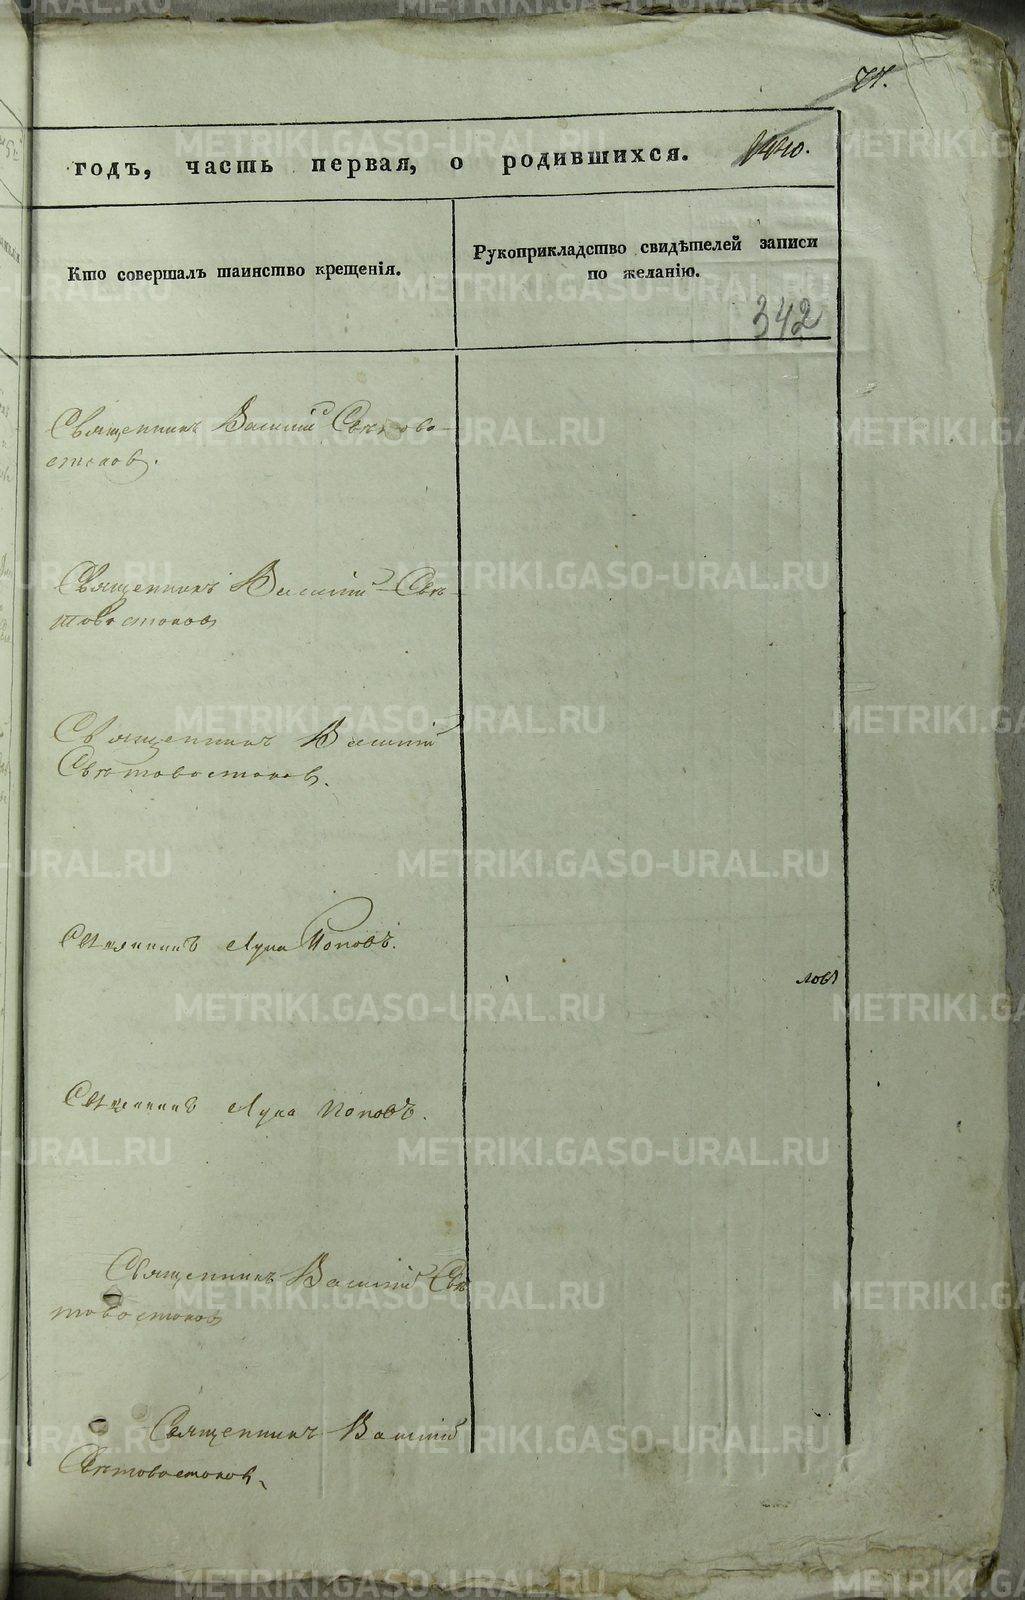 77.
годъ, часть первая, о родившихся.
Кто совершалъ таинство крещенія.
Рукоприкладство свидѣтелей записи
по желанію.
342
Священникъ Василій Свѣтово-
стоковъ.
Священникъ Василій Свѣ-
товостоковъ
Священникъ Василій
Свѣтовостоковъ.
Священникъ Лука Поповъ.
ловъ
Священникъ Лука Поповъ.
Священникъ Василій Свѣ
товостоковъ
Священникъ Василій
Свѣтовостоковъ
METRIKI.GASO-URAL.RU